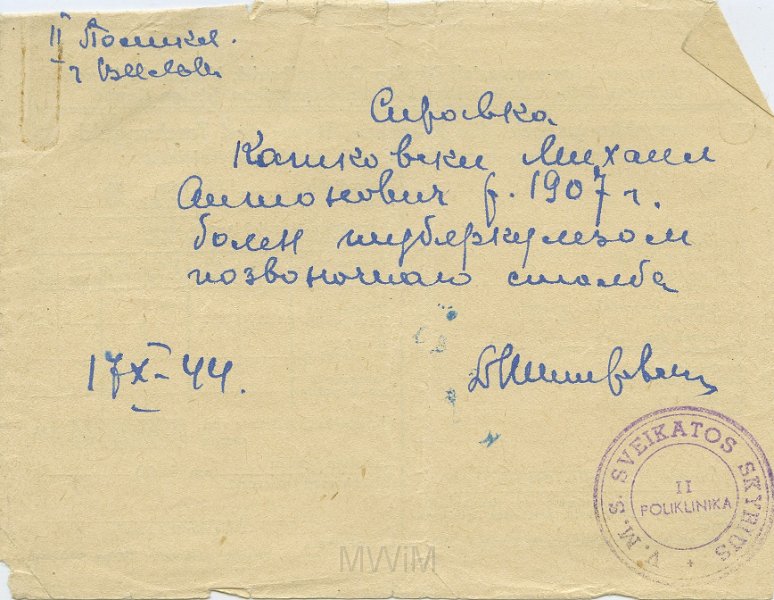 II Поликл.
г Вильно
Справка
Катковски Михаил
Антонович р. 1907 г.
болен туберкулезом
позвоночного столба
17 X - 44.
V. M. S. SVEIKATOS SKYRIUS
II
POLIKLINIKA
MWiM